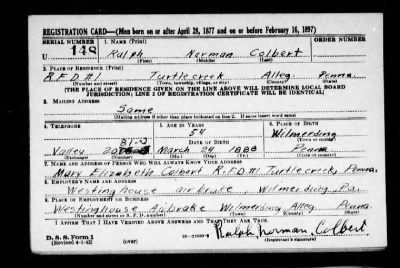 REGISTRATION CARD—(Men born on or after April 28, 1877 and on or before February 16, 1897)
SERIAL NUMBER 1. NAME (Print)
U 148 Ralph Norman Colbert
(First) (Middle) (Last)
2. PLACE OF RESIDENCE (Print)
R.F.D #1 Turtlecreek Alleg. Penna
(Number and street) (Town, township, village, or city) (County) (State)
[THE PLACE OF RESIDENCE GIVEN ON THE LINE ABOVE WILL DETERMINE LOCAL BOARD
JURISDICTION; LINE 2 OF REGISTRATION CERTIFICATE WILL BE IDENTICAL]
3. MAILING ADDRESS
Same
(Mailing address if other than place indicated on line 2. If same insert word same)
4. TELEPHONE 5. AGE IN YEARS 6. PLACE OF BIRTH
54 Wilmerding
DATE OF BIRTH (Town or county)
Valley March 24 1888 Penna
(Exchange) (Number) (Mo.) (Day) (Yr.) (State or country)
7. NAME AND ADDRESS OF PERSON WHO WILL ALWAYS KNOW YOUR ADDRESS
Mary Elizabeth Colbert R.F.D #1 Turtlecreek, Penna.
8. EMPLOYER'S NAME AND ADDRESS
Westinghouse airbrake, Wilmerding Pa.
9. PLACE OF EMPLOYMENT OR BUSINESS
Westinghouse Airbrake Wilmerding Alleg. Penna.
(Number and street or R. F. D. number) (Town) (County) (State)
I AFFIRM THAT I HAVE VERIFIED ABOVE ANSWERS AND THAT THEY ARE TRUE.
D. S. S. Form 1
(Revised 4-1-42) (over) Ralph Norman Colbert
(Registrant's signature)